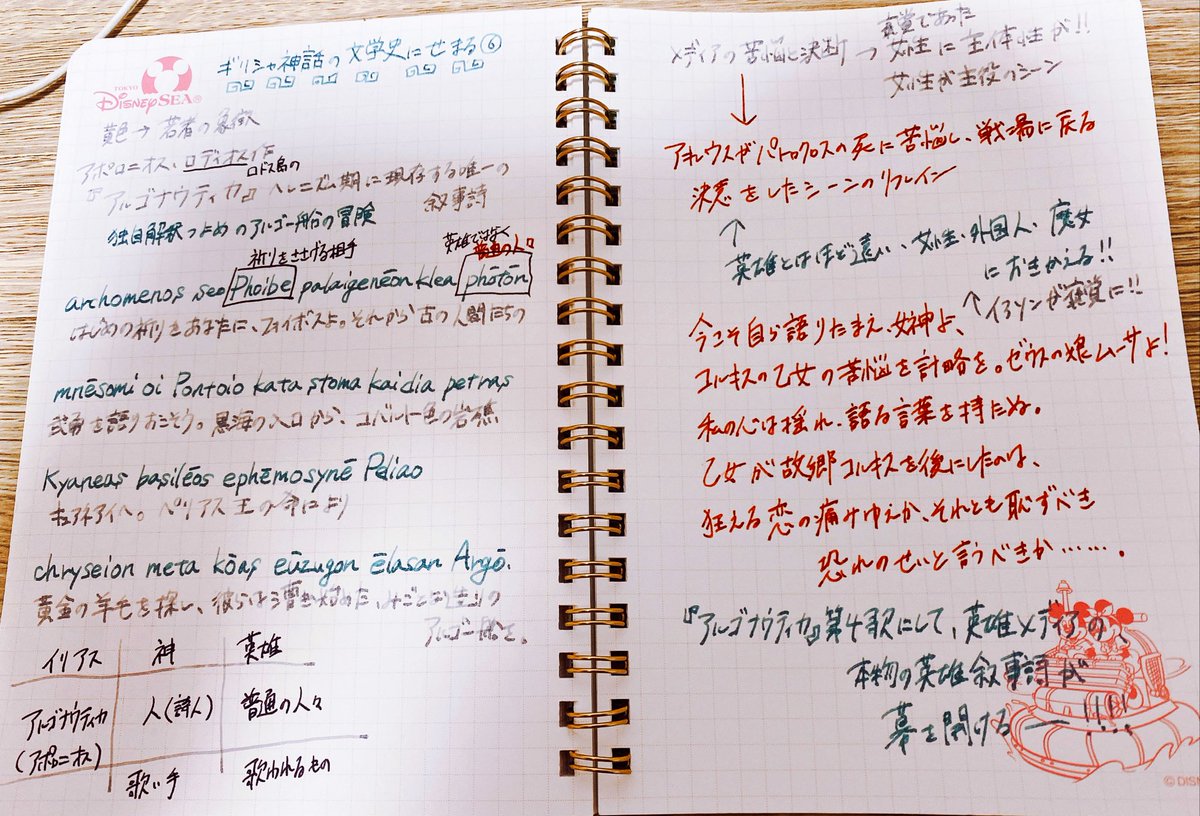 TOKYO
DISNEYSEA®
ギリシャ神話の文学史にせまる⑥
黄色→若者の象徴
アポロニオス・ロディオス作
ロドス島の
『アルゴナウティカ』ヘレニズム期に現存する唯一の
叙事詩
独自解釈つよめのアルゴー船の冒険
祈りをささげる相手
英雄ではなく
普通の人々
archomenos seo Phoibe palaigeneōn klea phōtōn
はじめの祈りをあなたに、フォイボスよ。それから古の人間たちの
mnēsomi oi Pontoio kata stoma kai dia petras
武勇を語りおこそう。黒海の入口から、コバルト色の岩礁
Kyaneas basilēos ephēmosynē Peliao
キュアネアイへ。ペリアス王の命により
chryseion meta kōas eūzugon ēlasan Argō.
黄金の羊毛を探し、彼らは漕ぎ進めた、みごとな造りの
アルゴー船を。
イリアス 神 英雄
アルゴナウティカ
(アポロニオス) 人(詩人) 普通の人々
歌い手 歌われるもの
メディアの苦悩と決断→
客体であった
女性に主体性が!!
女性が主役のシーン
アキレウスがパトロクロスの死に苦悩し、戦場に戻る
決意をしたシーンのリフレイン
↑
英雄とはほど遠い、女性・外国人・魔女
におきかえる!!
↑イアソンが客体に!!
今こそ自ら語りたまえ、女神よ、
コルキスの乙女の苦悩を計略を。ゼウスの娘ムーサよ!
私の心は揺れ、語る言葉を持たぬ。
乙女が故郷コルキスを後にしたのは、
狂える恋の痛みゆえか、それとも恥ずべき
恐れのせいと言うべきか……。
『アルゴナウティカ』第4歌にして、英雄メディアの、
本物の英雄叙事詩が
幕を開ける―!!!!